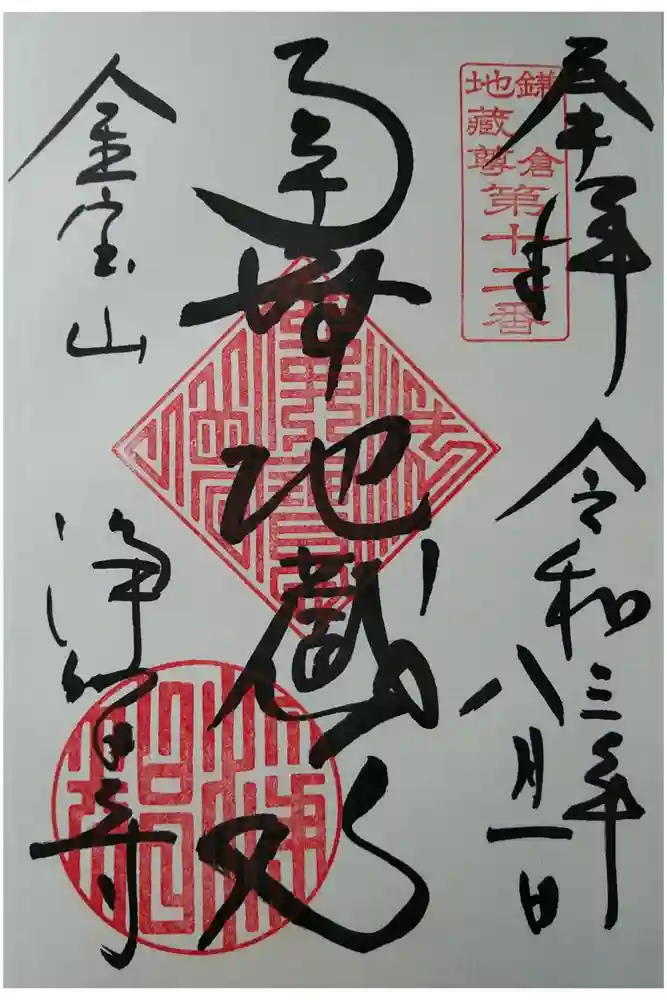 奉拝
令和三年
八月一日
鎌倉
地蔵尊
第十二番
南無地蔵尊
金宝山
浄智寺